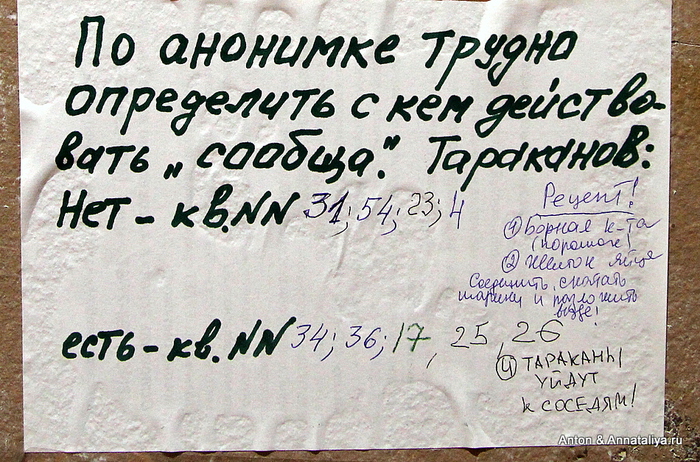 По анонимке трудно
определить с кем действо-
вать „сообща". Тараканов:
Нет - кв. NN 31; 54; 23; 4
Рецепт!
① Борная к-та
(порошок)
② Желток яйца
Соединить, скатать
шарики и разложить
везде!
есть - кв. NN 34; 36; 17, 25, 26
④ ТАРАКАНЫ
УЙДУТ
К СОСЕДЯМ!
Anton & Annataliya.ru